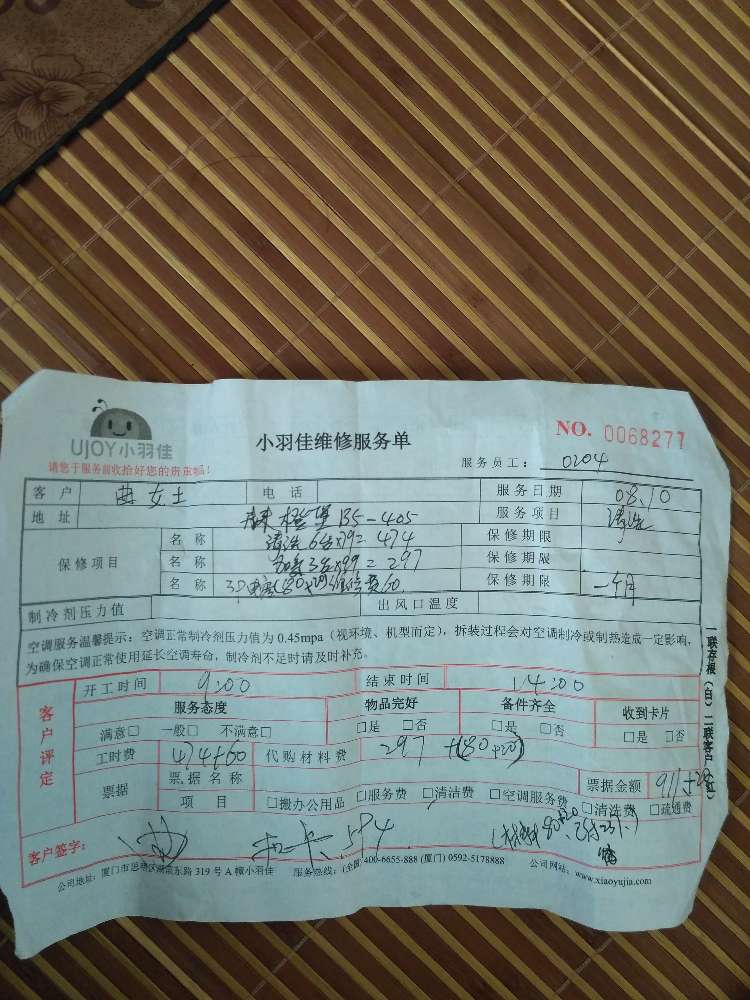 UJOY小羽佳
小羽佳维修服务单
NO. 0068277
请您于服务前收拾好您的贵重物品!
服务员工: 0204
客户 曲女士 电话 服务日期 08.10
地址 橙堡B5-405 服务项目 清洗
保修项目
名称 清洗6台x79=474 保修期限
名称 加氨3台x99=297 保修期限
名称 维修费60 保修期限 一个月
制冷剂压力值 出风口温度
空调服务温馨提示: 空调正常制冷剂压力值为 0.45mpa (视环境、机型而定), 拆装过程会对空调制冷或制热造成一定影响,
为确保空调正常使用延长空调寿命, 制冷剂不足时请及时补充。
一联存根(白) 二联客户(红)
客户评定
开工时间 9:00 结束时间 14:00
服务态度 物品完好 备件齐全 收到卡片
满意□ 一般□ 不满意□ □是 □否 □是 □否 □是 □否
工时费 474+60 代购材料费 297 +(80+20)
票据 票据名称 票据金额 911+20
项目 □搬办公用品 □服务费 □清洁费 □空调服务费 □清洗费 □疏通费
客户签字: 曲 扣卡594
公司地址: 厦门市思明区湖滨东路 319 号 A 幢小羽佳 服务热线: (全国)400-6655-888 (厦门) 0592-5178888 公司网站: www.xiaoyujia.com